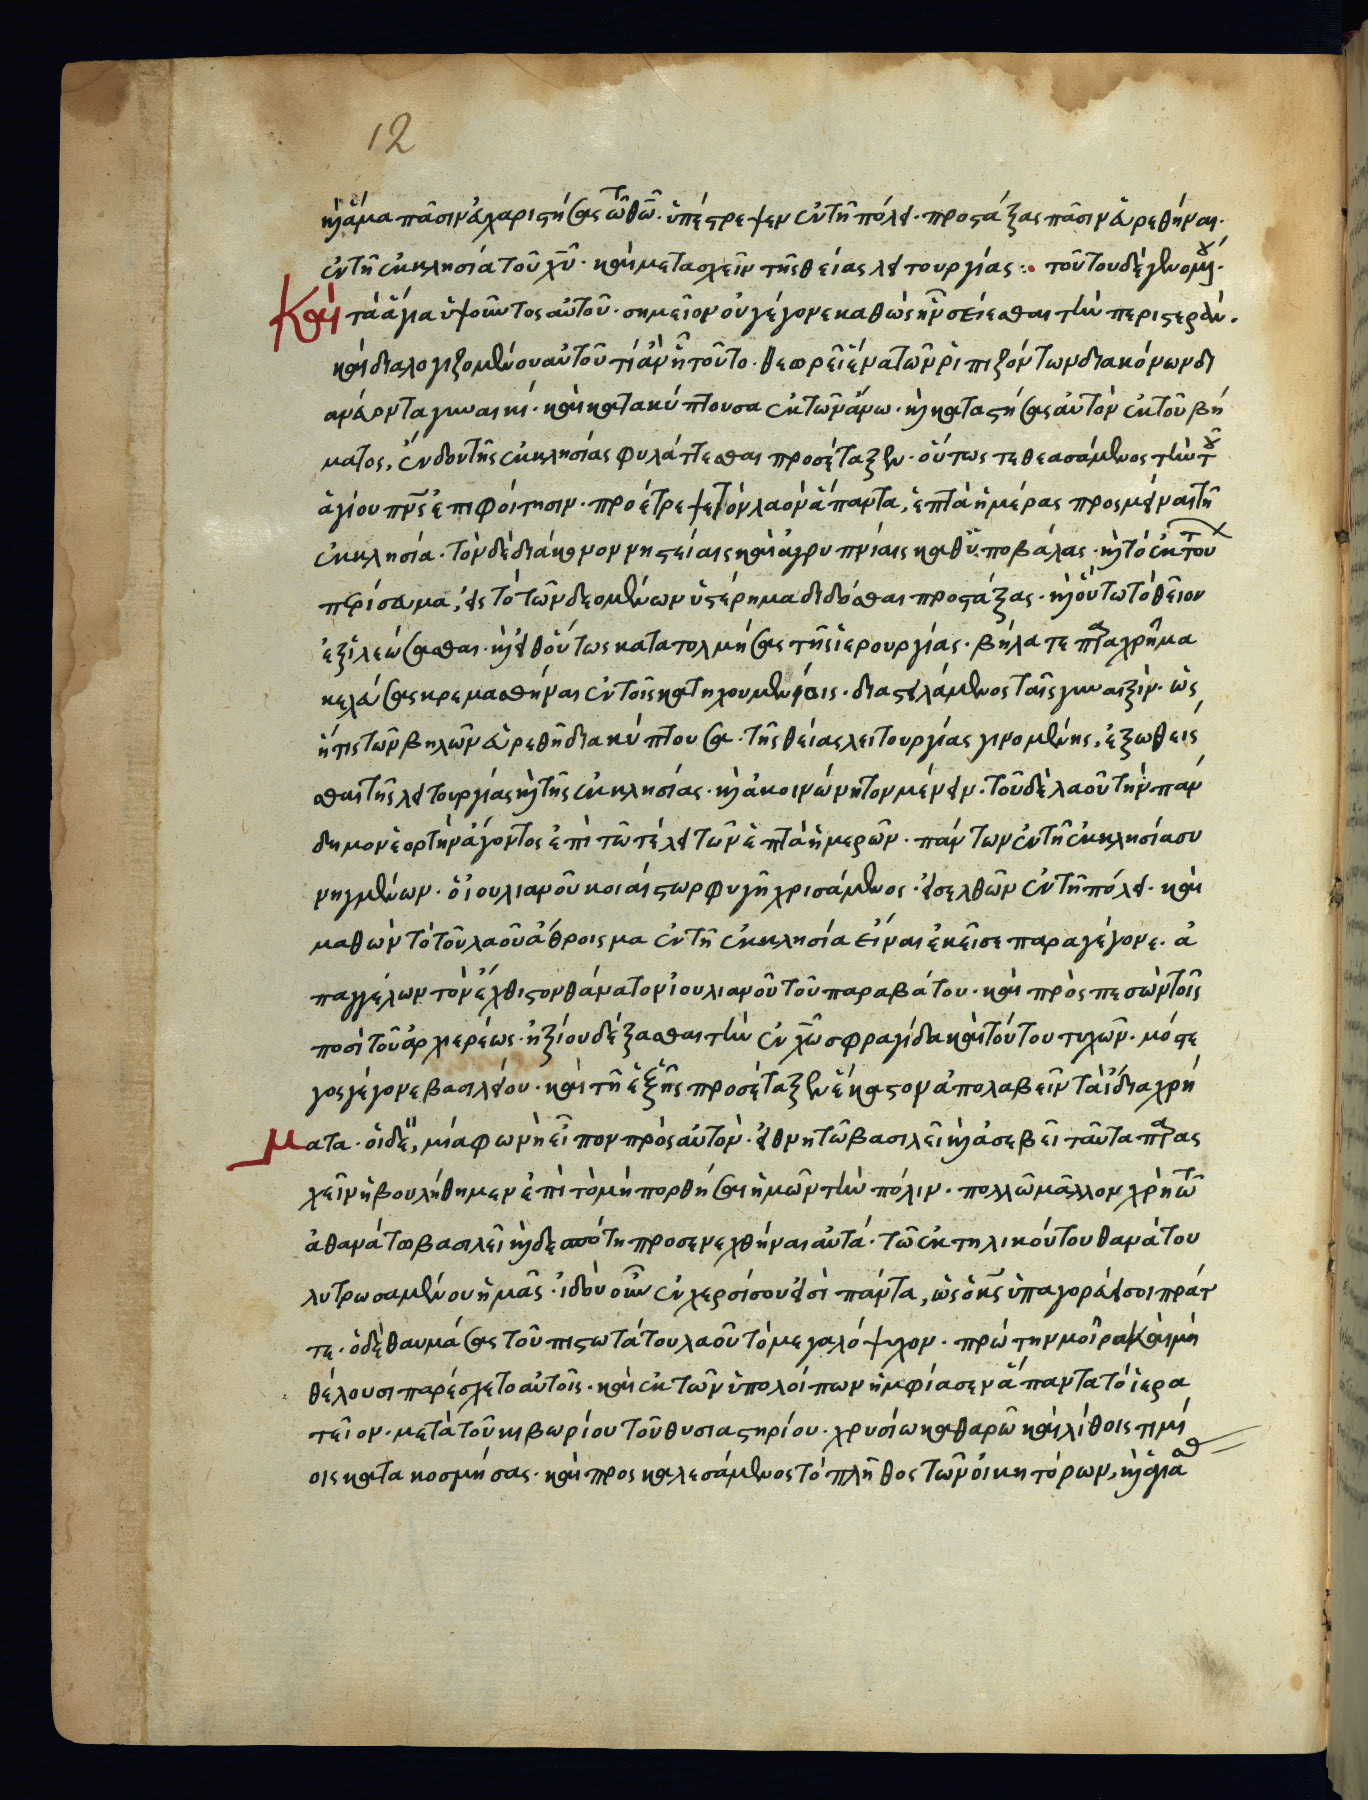 12
κὶ ἅμα πᾶσιν εὐχαριστήσας τῶ θῶ. ὑπέστρεψεν ἐν τῆ πόλει. προστάξας πᾶσιν εὑρεθῆναι.
ἐν τῆ ἐκκλησία τοῦ χῦ. καὶ μετασχεῖν τῆς θείας λειτουργίας : τούτου δὲ γενομένου.
Καὶ τὰ ἅγια ὑψοῦντος αὐτοῦ. σημεῖον οὐ γέγονε καθὼς ἦν σείεσθαι τὴν περιστεράν.
καὶ διαλογιζομένου αὐτοῦ τί ἂν ῆ τοῦτο. θεωρεῖ ἕνα τῶν ριπιζόντων διακόνων δι
ανεύοντα γυναικί. καὶ κατακύπτουσα ἐκ τῶν ἄνω. κὶ καταστήσας αὐτὸν ἐκ τοῦ βή
ματος, ἔνδον τῆς ἐκκλησίας φυλάττεσθαι προσέταξεν. οὕτως τεθεασάμενος τὴν τοῦ
ἁγίου πνς ἐπιφοίτησιν. προέτρεψε τὸν λαὸν ἅπαντα, ἑπτὰ ἡμέρας προσμεῖναι τῆ
ἐκκλησία. τὸν δὲ διάκονον νηστείαις καὶ ἀγρυπνίαις καθ' ὑποβάλας. κὶ τὸ ἐκ τούτου
περίσευμα, εἰς τὸ τῶν δεομένων ὑστέρημα δίδοσθαι προστάξας. κὶ οὕτω τὸ θεῖον
ἐξιλεώσασθαι. κὶ εἶθ' οὕτως κατατολμήσας τῆς ἱερουργίας. βήλα τε παραχρῆμα
κελεύσας κρεμασθῆναι ἐν τοῖς κατηχουμενίοις. διαστειλάμενος ταῖς γυναιξὶν. ὡς
ἥτις τῶν βηλῶν εὑρεθῆ διακύπτουσα. τῆς θείας λειτουργίας γινομένης, ἐξωθεῖσ
θαι τῆς λειτουργίας κὶ τῆς ἐκκλησίας. κὶ ἀκοινώνητον μένειν. τοῦ δὲ λαοῦ τὴν παν
δημον ἑορτὴν ἄγοντος ἐπὶ τῶ τέλει τῶν ἑπτὰ ἡμερῶν. πάντων ἐν τῆ ἐκκλησία συ
νηγμένων. ὁ ἰουλιανοῦ κοιαίστωρ φυγῆ χρισάμενος. εἰσελθὼν ἐν τῆ πόλει. καὶ
μαθὼν τὸ τοῦ λαοῦ ἄθροισμα ἐν τῆ ἐκκλησία εἶναι ἐκεῖσε παραγέγονε. ἀ
παγγέλων τὸν ἔχθιστον θάνατον ἰουλιανοῦ τοῦ παραβάτου. καὶ πρὸς πεσὼν τοῖς
ποσὶ τοῦ ἀρχιερέως. ἠξίου δέξασθαι τὴν ἐν χῶ σφραγίδα καὶ τούτου τυχῶν. μόστε
γος γέγονε βασιλείου. καὶ τῆ ἑξῆς προσέταξεν ἕκαστον ἀπολαβεῖν τὰ ἴδια χρή
ματα. οἱ δὲ, μία φωνὴ εἶπον πρὸς αὐτὸν. εἰ θνητῶ βασιλεῖ κὶ ἀσεβεῖ ταῦτα παρας
χεῖν ἠβουλήθημεν ἐπὶ τὸ μὴ πορθῆσαι ἡμῶν τὴν πόλιν. πολλῶ μᾶλλον χρὴ τῶ
ἀθανάτω βασιλεῖ κὶ δεσπότη προσενεχθῆναι αὐτά. τῶ ἐκ τηλικούτου θανάτου
λυτρωσαμένου ἡμᾶς. ἰδοὺ οὖν ἐν χερσί σου εἰσὶ πάντα, ὡς ὁ κς ὑπαγορεύει σοι πράτ
τε. ὁ δὲ θαυμάσας τοῦ πιστωτάτου λαοῦ τὸ μεγαλόψυχον. πρώτην μοῖραν καὶ μὴ
θέλουσι παρέσχετο αὐτοῖς. καὶ ἐκ τῶν ὑπολοίπων ἠμφίασεν ἅπαντα τὸ ἱερα
τεῖον. μετὰ τοῦ κιβωρίου τοῦ θυσιαστηρίου. χρυσίω καθαρῶ καὶ λίθοις τιμί
οις κατακοσμήσας. καὶ προσκαλεσάμενος τὸ πλῆθος τῶν οἰκητόρων, κὶ ἁγιασ